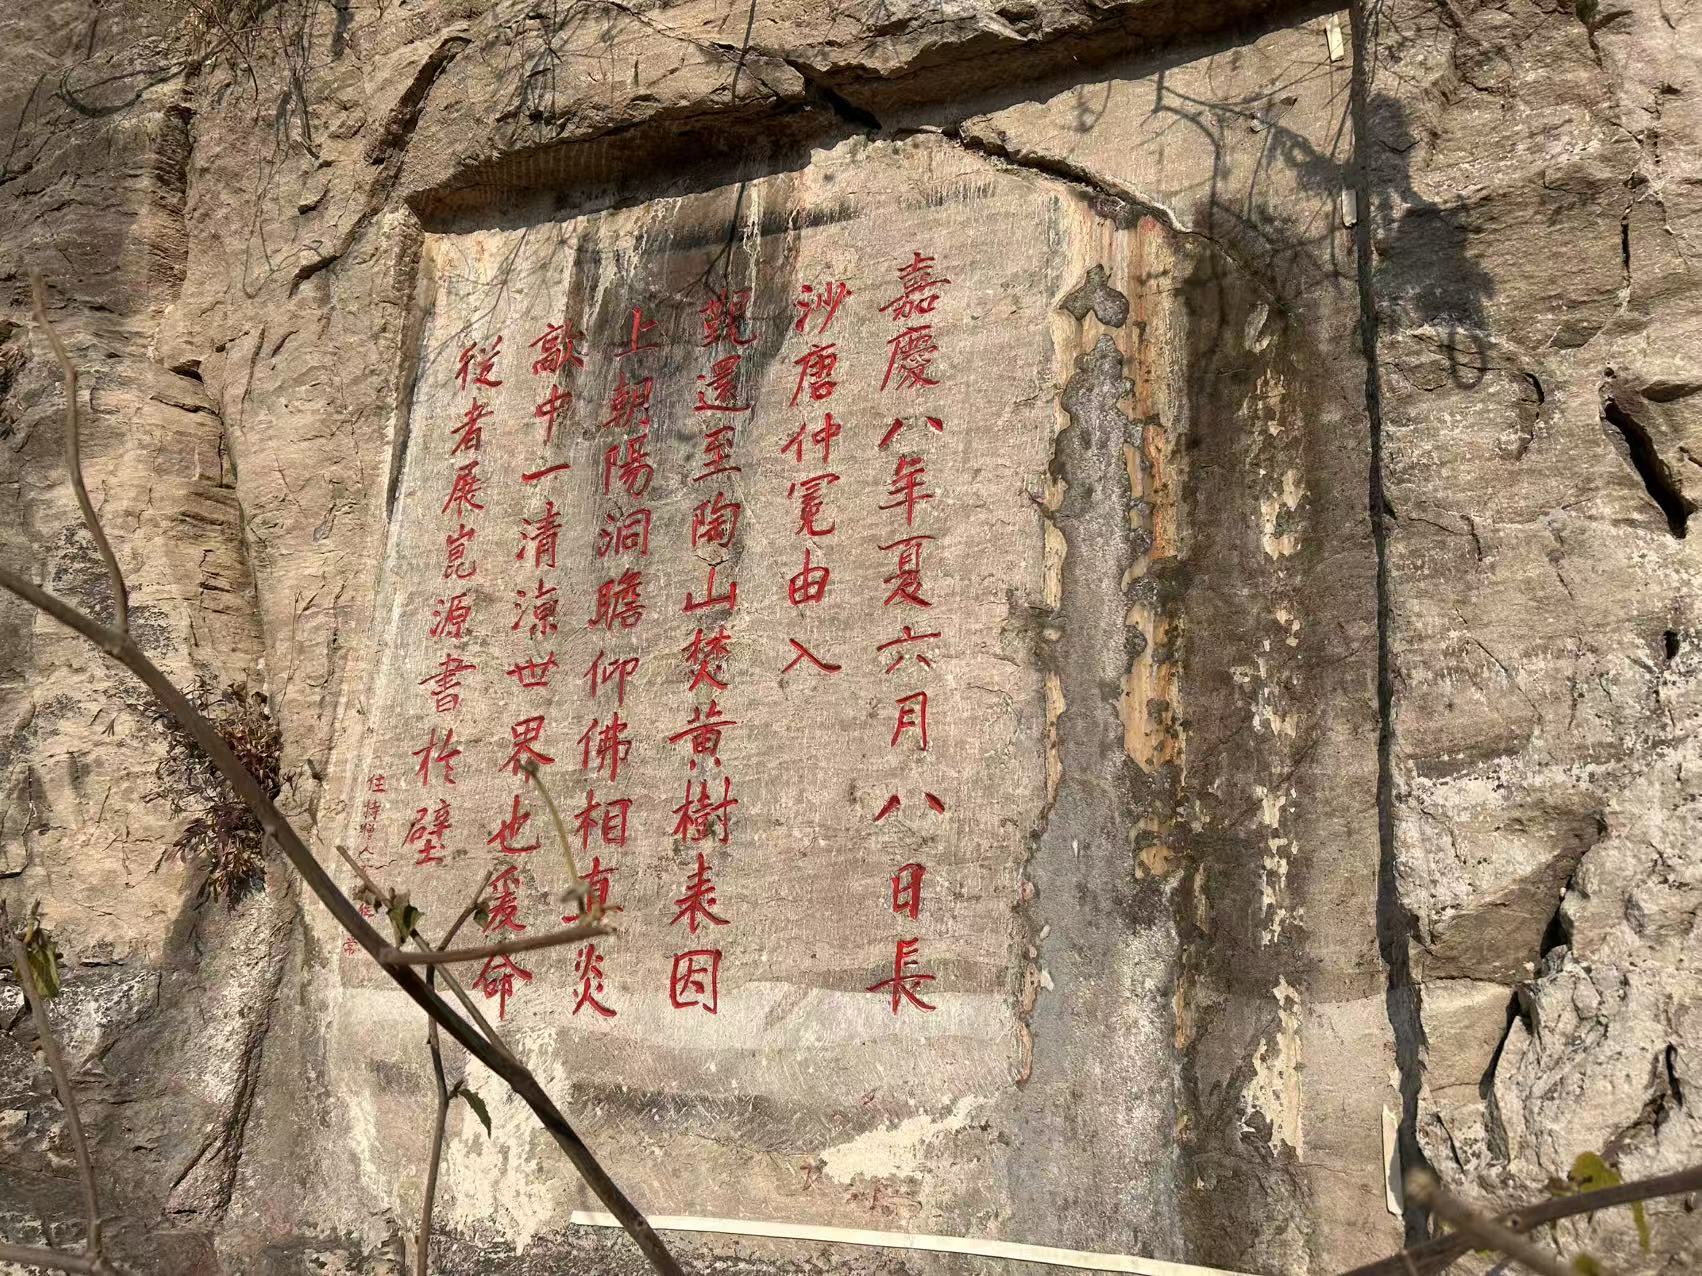 嘉慶八年夏六月八日長
沙唐仲冕由入
覲還至陶山焚黄樹表因
上朝陽洞瞻仰佛相真炎
歊中一清涼世界也爰命
從者展崑源書於壁
住持僧人